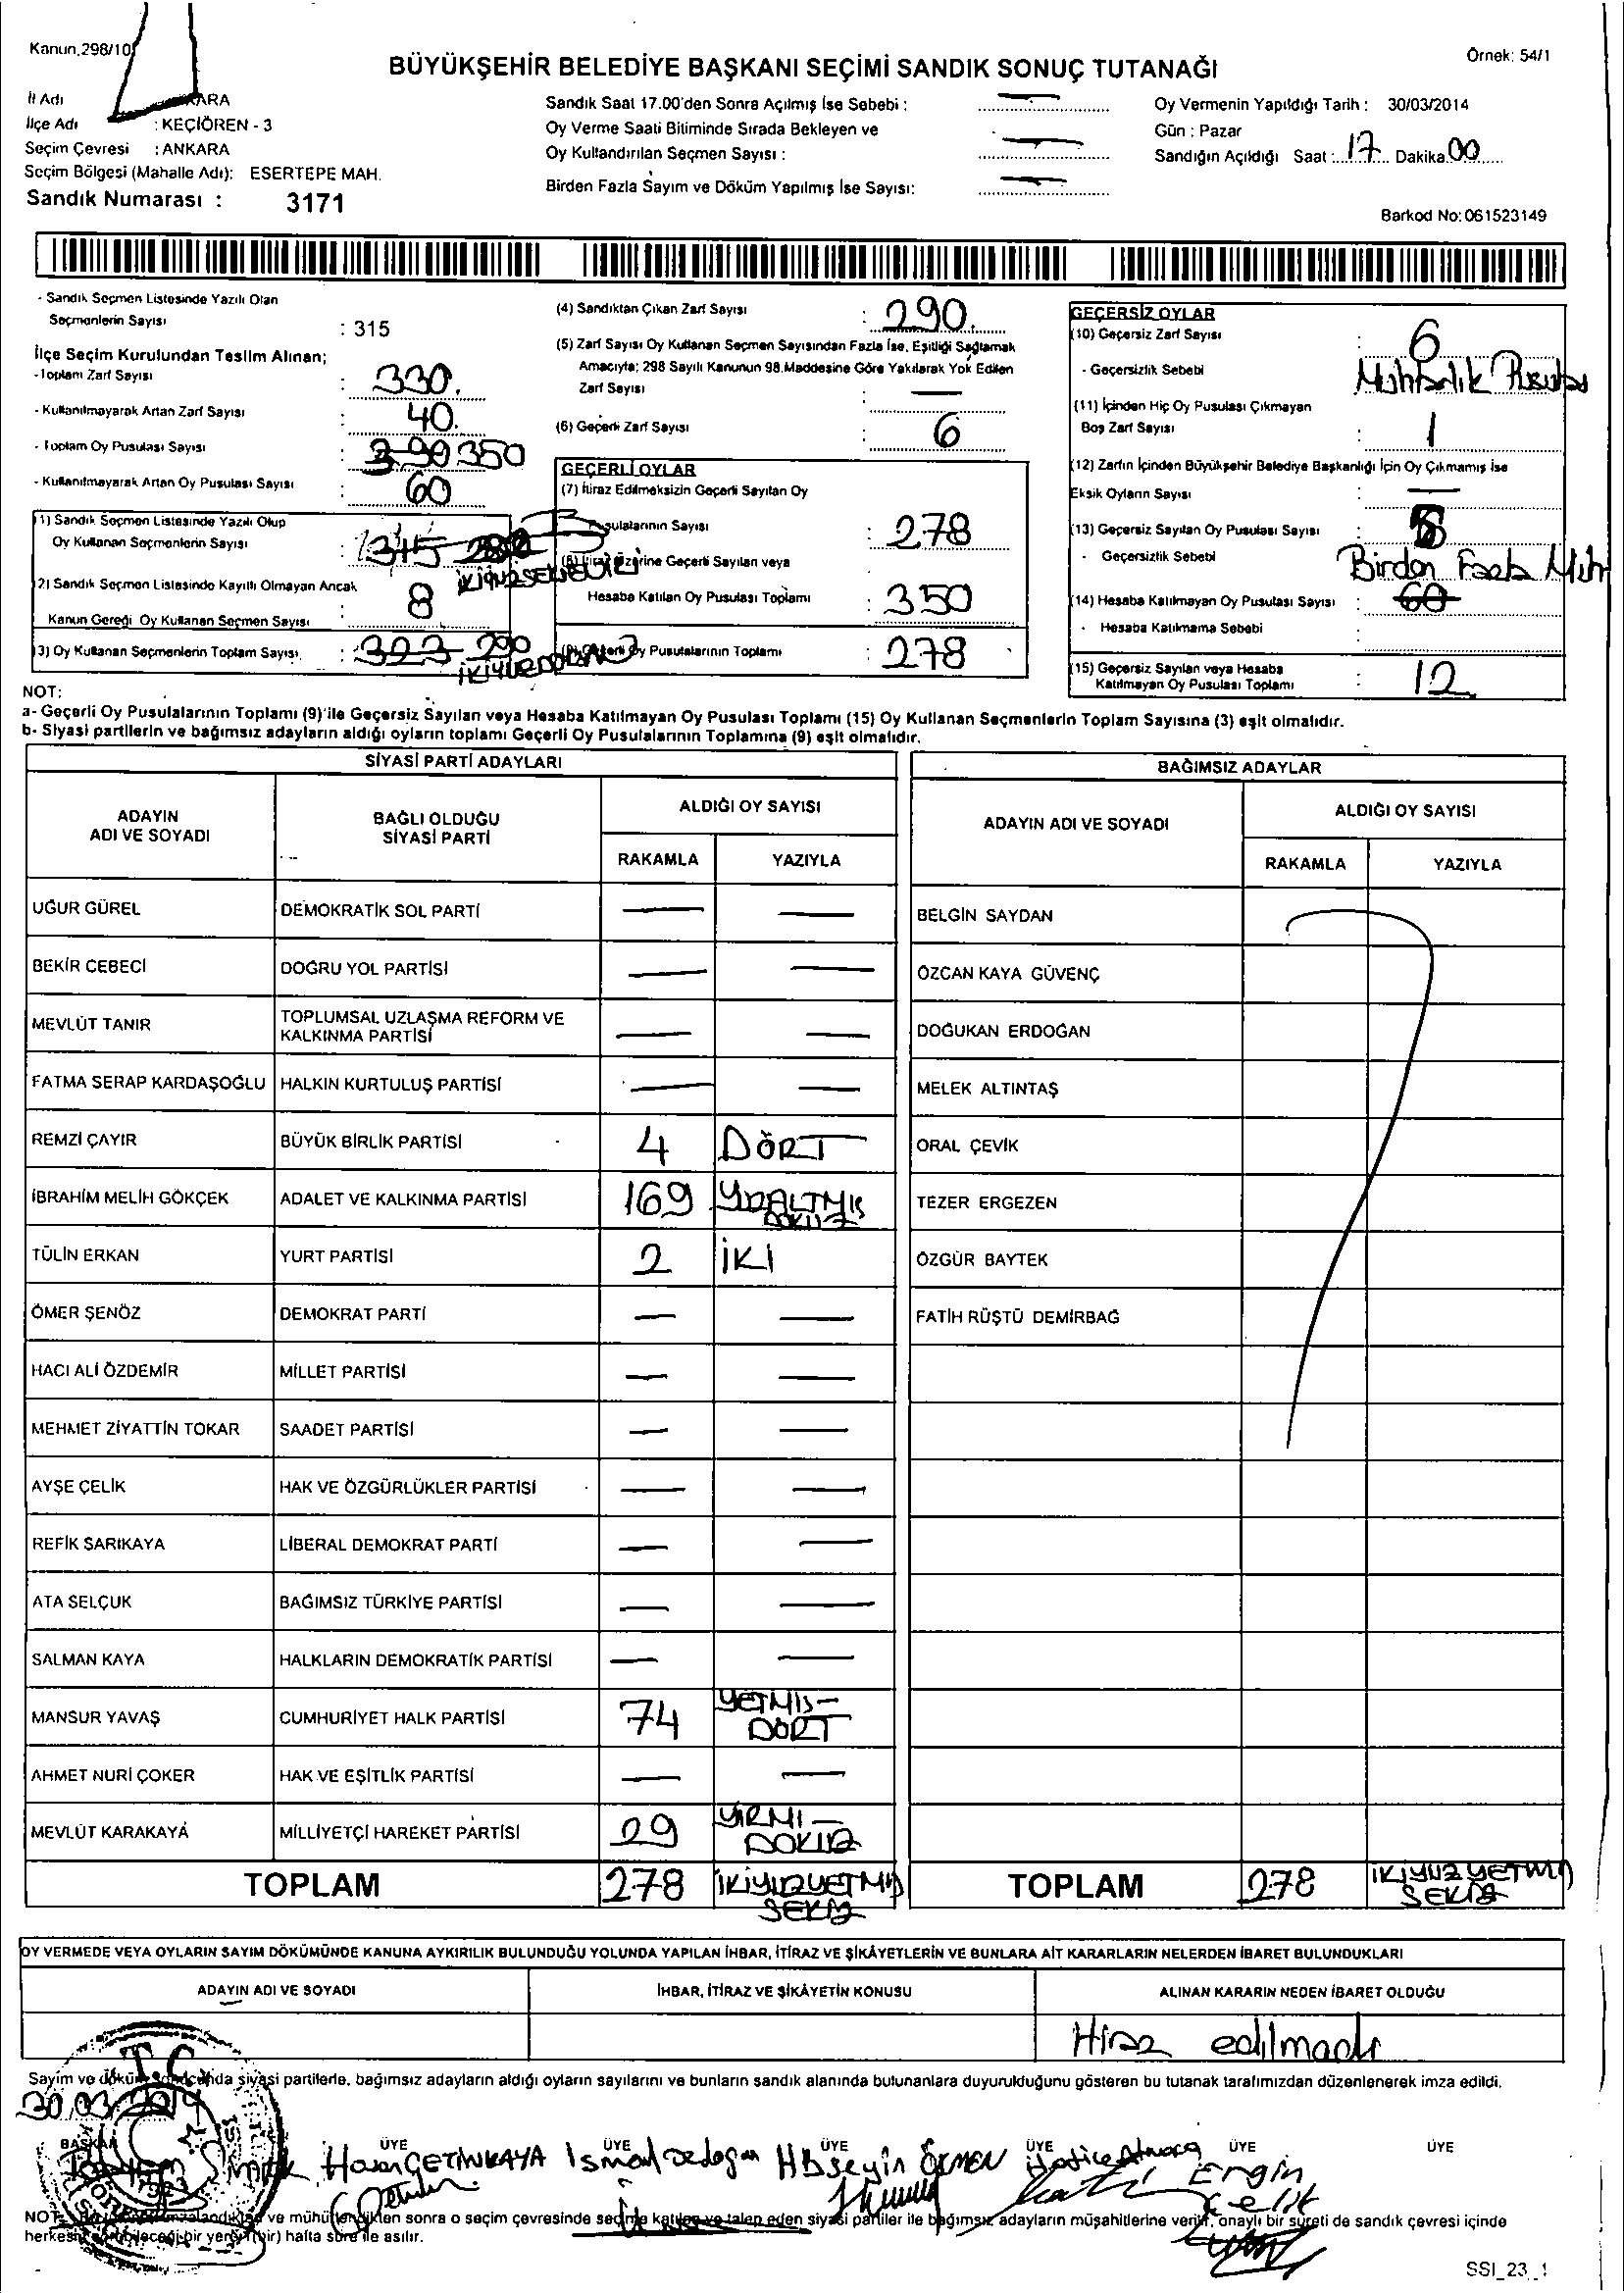 Kanun.298/10
Örnek: 54/1
BÜYÜKŞEHİR BELEDİYE BAŞKANI SEÇİMİ SANDIK SONUÇ TUTANAĞI
İl Adı ARA
İlçe Adı : KEÇİÖREN - 3
Seçim Çevresi : ANKARA
Seçim Bölgesi (Mahalle Adı): ESERTEPE MAH.
Sandık Numarası : 3171
Sandık Saat 17.00'den Sonra Açılmış İse Sebebi : —
Oy Verme Saati Bitiminde Sırada Bekleyen ve
Oy Kullandırılan Seçmen Sayısı : —
Birden Fazla Sayım ve Döküm Yapılmış İse Sayısı: —
Oy Vermenin Yapıldığı Tarih : 30/03/2014
Gün : Pazar
Sandığın Açıldığı Saat : 17 Dakika 00
Barkod No: 061523149
- Sandık Seçmen Listesinde Yazılı Olan
Seçmenlerin Sayısı : 315
İlçe Seçim Kurulundan Teslim Alınan;
- Toplam Zarf Sayısı : 330.
- Kullanılmayarak Artan Zarf Sayısı : 40.
- Toplam Oy Pusulası Sayısı : 390 350
- Kullanılmayarak Artan Oy Pusulası Sayısı : 60
(1) Sandık Seçmen Listesinde Yazılı Olup
Oy Kullanan Seçmenlerin Sayısı : 315
(2) Sandık Seçmen Listesinde Kayıtlı Olmayan Ancak
Kanun Gereği Oy Kullanan Seçmen Sayısı : 8
(3) Oy Kullanan Seçmenlerin Toplam Sayısı : 323 290
(4) Sandıktan Çıkan Zarf Sayısı : 290.
(5) Zarf Sayısı Oy Kullanan Seçmen Sayısından Fazla İse, Eşitliği Sağlamak
Amacıyla; 298 Sayılı Kanunun 98.Maddesine Göre Yakılarak Yok Edilen
Zarf Sayısı : —
(6) Geçerli Zarf Sayısı : 6
GEÇERLİ OYLAR
(7) İtiraz Edilmeksizin Geçerli Sayılan Oy
Pusulalarının Sayısı : 278
(8) İtiraz Üzerine Geçerli Sayılan veya
Hesaba Katılan Oy Pusulası Toplamı : 350
(9) Geçerli Oy Pusulalarının Toplamı : 278
GEÇERSİZ OYLAR
(10) Geçersiz Zarf Sayısı : 6
- Geçersizlik Sebebi
(11) İçinden Hiç Oy Pusulası Çıkmayan
Boş Zarf Sayısı : 1
(12) Zarfın İçinden Büyükşehir Belediye Başkanlığı İçin Oy Çıkmamış İse
Eksik Oyların Sayısı : —
(13) Geçersiz Sayılan Oy Pusulası Sayısı :
- Geçersizlik Sebebi Birden Fazla Müh
(14) Hesaba Katılmayan Oy Pusulası Sayısı : 60
- Hesaba Katılmama Sebebi :
(15) Geçersiz Sayılan veya Hesaba
Katılmayan Oy Pusulası Toplamı : 12
NOT:
a- Geçerli Oy Pusulalarının Toplamı (9)'ile Geçersiz Sayılan veya Hesaba Katılmayan Oy Pusulası Toplamı (15) Oy Kullanan Seçmenlerin Toplam Sayısına (3) eşit olmalıdır.
b- Siyasi partilerin ve bağımsız adayların aldığı oyların toplamı Geçerli Oy Pusulalarının Toplamına (9) eşit olmalıdır.
SİYASİ PARTİ ADAYLARI
ADAYIN ADI VE SOYADI
BAĞLI OLDUĞU SİYASİ PARTİ
ALDIĞI OY SAYISI
RAKAMLA YAZIYLA
UĞUR GÜREL DEMOKRATİK SOL PARTİ — —
BEKİR CEBECİ DOĞRU YOL PARTİSİ — —
MEVLÜT TANIR TOPLUMSAL UZLAŞMA REFORM VE KALKINMA PARTİSİ — —
FATMA SERAP KARDAŞOĞLU HALKIN KURTULUŞ PARTİSİ — —
REMZİ ÇAYIR BÜYÜK BİRLİK PARTİSİ 4 DÖRT
İBRAHİM MELİH GÖKÇEK ADALET VE KALKINMA PARTİSİ 169 YÜZALTMIŞ DOKUZ
TÜLİN ERKAN YURT PARTİSİ 2 İKİ
ÖMER ŞENÖZ DEMOKRAT PARTİ — —
HACI ALİ ÖZDEMİR MİLLET PARTİSİ — —
MEHMET ZİYATTİN TOKAR SAADET PARTİSİ — —
AYŞE ÇELİK HAK VE ÖZGÜRLÜKLER PARTİSİ — —
REFİK SARIKAYA LİBERAL DEMOKRAT PARTİ — —
ATA SELÇUK BAĞIMSIZ TÜRKİYE PARTİSİ — —
SALMAN KAYA HALKLARIN DEMOKRATİK PARTİSİ — —
MANSUR YAVAŞ CUMHURİYET HALK PARTİSİ 74 YETMİŞ- DÖRT
AHMET NURİ ÇOKER HAK VE EŞİTLİK PARTİSİ — —
MEVLÜT KARAKAYA MİLLİYETÇİ HAREKET PARTİSİ 29 YİRMİ- DOKUZ
TOPLAM 278 İKİYÜZYETMİŞ SEKİZ
BAĞIMSIZ ADAYLAR
ADAYIN ADI VE SOYADI
ALDIĞI OY SAYISI
RAKAMLA YAZIYLA
BELGİN SAYDAN
ÖZCAN KAYA GÜVENÇ
DOĞUKAN ERDOĞAN
MELEK ALTINTAŞ
ORAL ÇEVİK
TEZER ERGEZEN
ÖZGÜR BAYTEK
FATİH RÜŞTÜ DEMİRBAĞ
TOPLAM 278 İKİYÜZYETMİŞ SEKİZ
OY VERMEDE VEYA OYLARIN SAYIM DÖKÜMÜNDE KANUNA AYKIRILIK BULUNDUĞU YOLUNDA YAPILAN İHBAR, İTİRAZ VE ŞİKÂYETLERİN VE BUNLARA AİT KARARLARIN NELERDEN İBARET BULUNDUKLARI
ADAYIN ADI VE SOYADI
İHBAR, İTİRAZ VE ŞİKÂYETİN KONUSU
ALINAN KARARIN NEDEN İBARET OLDUĞU
itiraz edilmedi
T.C.
Sayım ve döküm sonucunda siyasi partilerle, bağımsız adayların aldığı oyların sayılarını ve bunların sandık alanında bulunanlara duyurulduğunu gösteren bu tutanak tarafımızdan düzenlenerek imza edildi.
30.03.2014
BAŞKAN ÜYE ÜYE ÜYE ÜYE ÜYE ÜYE
Hasan ÇETİNKAYA
Hüseyin
Ergin Çelik
NOT: ve mühürlendikten sonra o seçim çevresinde seçime katılan ve talep eden siyasi partiler ile bağımsız adayların müşahitlerine verilir, onaylı bir sureti de sandık çevresi içinde
bir yere 1 (bir) hafta süre ile asılır.
SSI_23_1